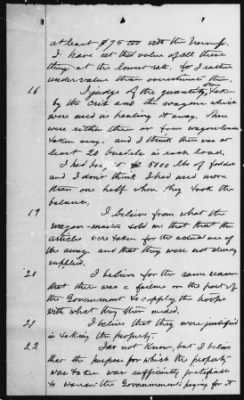 at least $75 00 with the
I have set the value of all these
thing at the lowest rate. for I rather
undervalue than overestimate them.
16 I judge of the quantity, taken
by the crib and the wagons which
were used in hauling it away. There
were either three or four wagon loads
taken away. and I think there was at
least 20 bushels in each load.
I had too, 5000 lbs of fodder
and I don't think I had used more
than one half when they took the
balance.
19 I believe from what the
wagon-master told me that that the
articles were taken for the actual use of
the army and that they were not already
supplied.
20 I believe for the same reason
that there was a failure on the part of
the Government to supply the troops
with what they then needed.
21 I believe that they were justified
in taking the property.
22 I do not know, but I believe
that the purpose for which the property
was taken was sufficiently justifiable
to warrant the Government paying for it